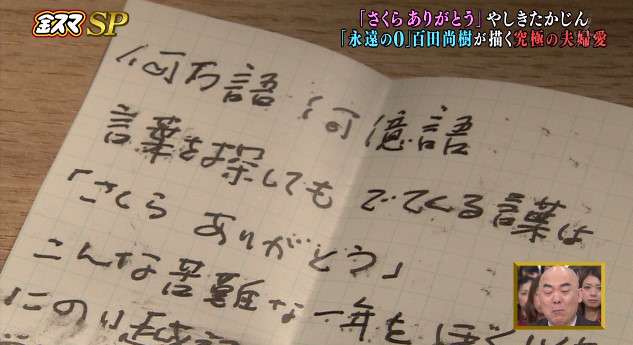 金スマSP
「さくら ありがとう」やしきたかじん
「永遠の0」百田尚樹が描く究極の夫婦愛
何万語 何億語
言葉を探しても でてくる言葉は
「さくら ありがとう」
こんな苦難な一年も ぼく